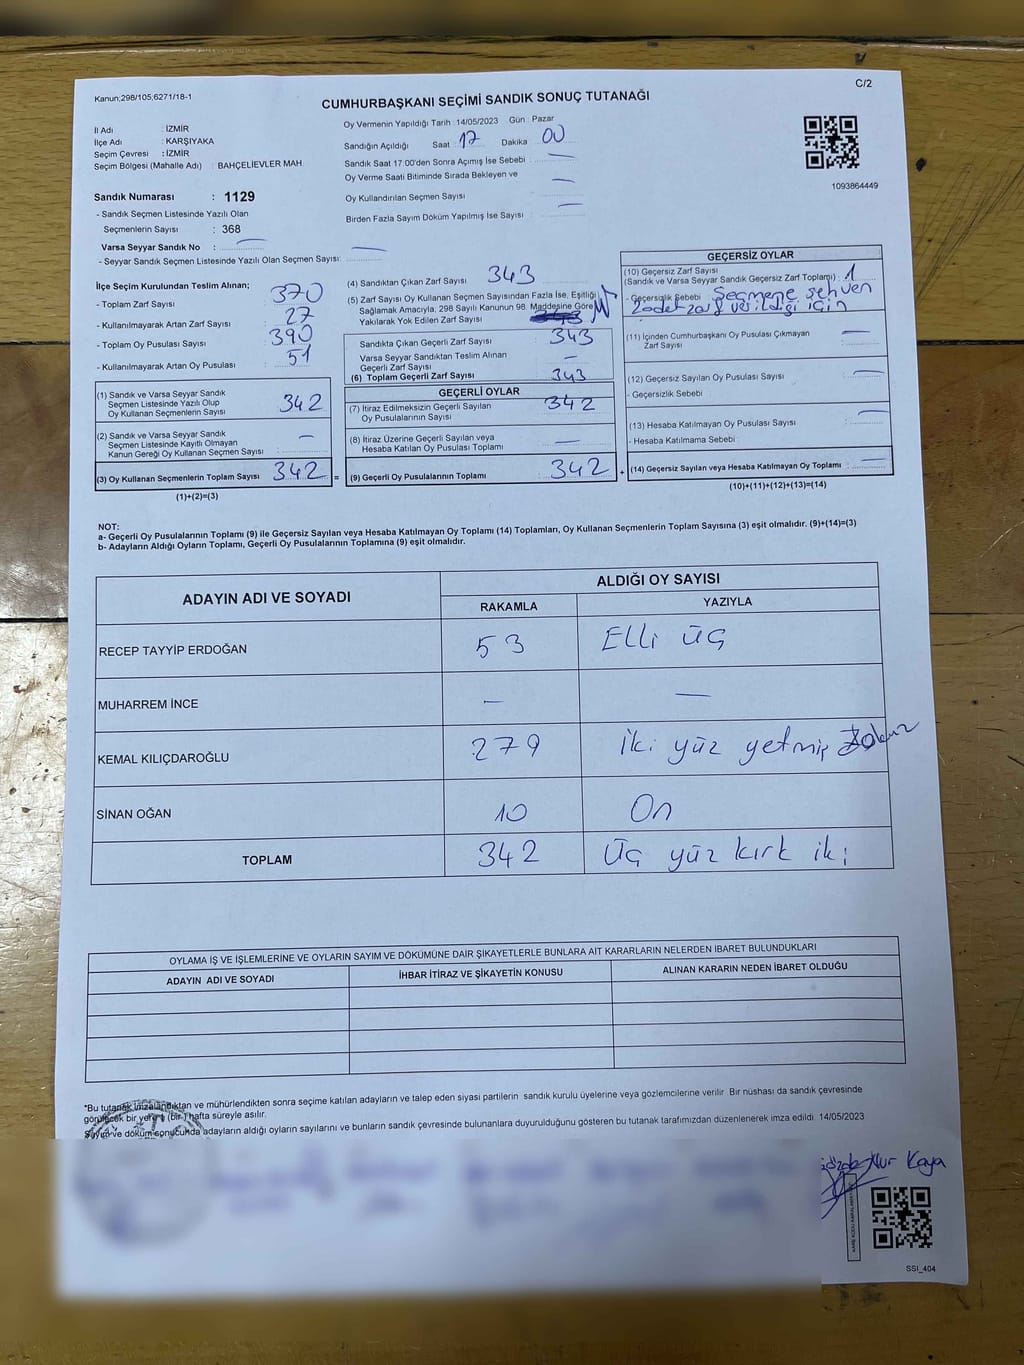 Kanun;298/105;6271/18-1
C/2
CUMHURBAŞKANI SEÇİMİ SANDIK SONUÇ TUTANAĞI
İl Adı : İZMİR
İlçe Adı : KARŞIYAKA
Seçim Çevresi : İZMİR
Seçim Bölgesi (Mahalle Adı) : BAHÇELİEVLER MAH.
Sandık Numarası : 1129
- Sandık Seçmen Listesinde Yazılı Olan
Seçmenlerin Sayısı : 368
Varsa Seyyar Sandık No : —
- Seyyar Sandık Seçmen Listesinde Yazılı Olan Seçmen Sayısı: —
Oy Vermenin Yapıldığı Tarih : 14/05/2023 Gün : Pazar
Sandığın Açıldığı Saat 17 Dakika 00
Sandık Saat 17:00'den Sonra Açımış İse Sebebi : —
Oy Verme Saati Bitiminde Sırada Bekleyen ve
Oy Kullandırılan Seçmen Sayısı : —
Birden Fazla Sayım Döküm Yapılmış İse Sayısı : —
1093864449
İlçe Seçim Kurulundan Teslim Alınan;
- Toplam Zarf Sayısı : 370
- Kullanılmayarak Artan Zarf Sayısı : 27
- Toplam Oy Pusulası Sayısı : 390
- Kullanılmayarak Artan Oy Pusulası : 51
(1) Sandık ve Varsa Seyyar Sandık
Seçmen Listesinde Yazılı Olup
Oy Kullanan Seçmenlerin Sayısı : 342
(2) Sandık ve Varsa Seyyar Sandık
Seçmen Listesinde Kayıtlı Olmayan
Kanun Gereği Oy Kullanan Seçmen Sayısı : —
(3) Oy Kullanan Seçmenlerin Toplam Sayısı : 342
(1)+(2)=(3)
(4) Sandıktan Çıkan Zarf Sayısı : 343
(5) Zarf Sayısı Oy Kullanan Seçmen Sayısından Fazla İse, Eşitliği
Sağlamak Amacıyla, 298 Sayılı Kanunun 98. Maddesine Göre
Yakılarak Yok Edilen Zarf Sayısı
Sandıkta Çıkan Geçerli Zarf Sayısı : 343
Varsa Seyyar Sandıktan Teslim Alınan
Geçerli Zarf Sayısı : —
(6) Toplam Geçerli Zarf Sayısı : 343
GEÇERLİ OYLAR
(7) İtiraz Edilmeksizin Geçerli Sayılan
Oy Pusulalarının Sayısı : 342
(8) İtiraz Üzerine Geçerli Sayılan veya
Hesaba Katılan Oy Pusulası Toplamı : —
= (9) Geçerli Oy Pusulalarının Toplamı : 342 +
GEÇERSİZ OYLAR
(10) Geçersiz Zarf Sayısı
(Sandık ve Varsa Seyyar Sandık Geçersiz Zarf Toplamı) : 1
- Geçersizlik Sebebi : Seçmene sehven
2 adet zarf verildiği için
(11) İçinden Cumhurbaşkanı Oy Pusulası Çıkmayan
Zarf Sayısı : —
(12) Geçersiz Sayılan Oy Pusulası Sayısı : —
- Geçersizlik Sebebi :
(13) Hesaba Katılmayan Oy Pusulası Sayısı : —
- Hesaba Katılmama Sebebi :
(14) Geçersiz Sayılan veya Hesaba Katılmayan Oy Toplamı : —
(10)+(11)+(12)+(13)=(14)
NOT:
a- Geçerli Oy Pusulalarının Toplamı (9) ile Geçersiz Sayılan veya Hesaba Katılmayan Oy Toplamı (14) Toplamları, Oy Kullanan Seçmenlerin Toplam Sayısına (3) eşit olmalıdır. (9)+(14)=(3)
b- Adayların Aldığı Oyların Toplamı, Geçerli Oy Pusulalarının Toplamına (9) eşit olmalıdır.
ADAYIN ADI VE SOYADI ALDIĞI OY SAYISI
RAKAMLA YAZIYLA
RECEP TAYYİP ERDOĞAN 53 Elli üç
MUHARREM İNCE — —
KEMAL KILIÇDAROĞLU 279 iki yüz yetmiş dokuz
SİNAN OĞAN 10 On
TOPLAM 342 Üç yüz kırk iki
OYLAMA İŞ VE İŞLEMLERİNE VE OYLARIN SAYIM VE DÖKÜMÜNE DAİR ŞİKAYETLERLE BUNLARA AİT KARARLARIN NELERDEN İBARET BULUNDUKLARI
ADAYIN ADI VE SOYADI İHBAR İTİRAZ VE ŞİKAYETİN KONUSU ALINAN KARARIN NEDEN İBARET OLDUĞU
*Bu tutanak imzalandıktan ve mühürlendikten sonra seçime katılan adayların ve talep eden siyasi partilerin sandık kurulu üyelerine veya gözlemcilerine verilir. Bir nüshası da sandık çevresinde
görülecek bir yerine (bir ) hafta süreyle asılır.
Sayım ve döküm sonucunda adayların aldığı oyların sayılarını ve bunların sandık çevresinde bulunanlara duyurulduğunu gösteren bu tutanak tarafımızdan düzenlenerek imza edildi. 14/05/2023
Nur Kaya
SSI_404